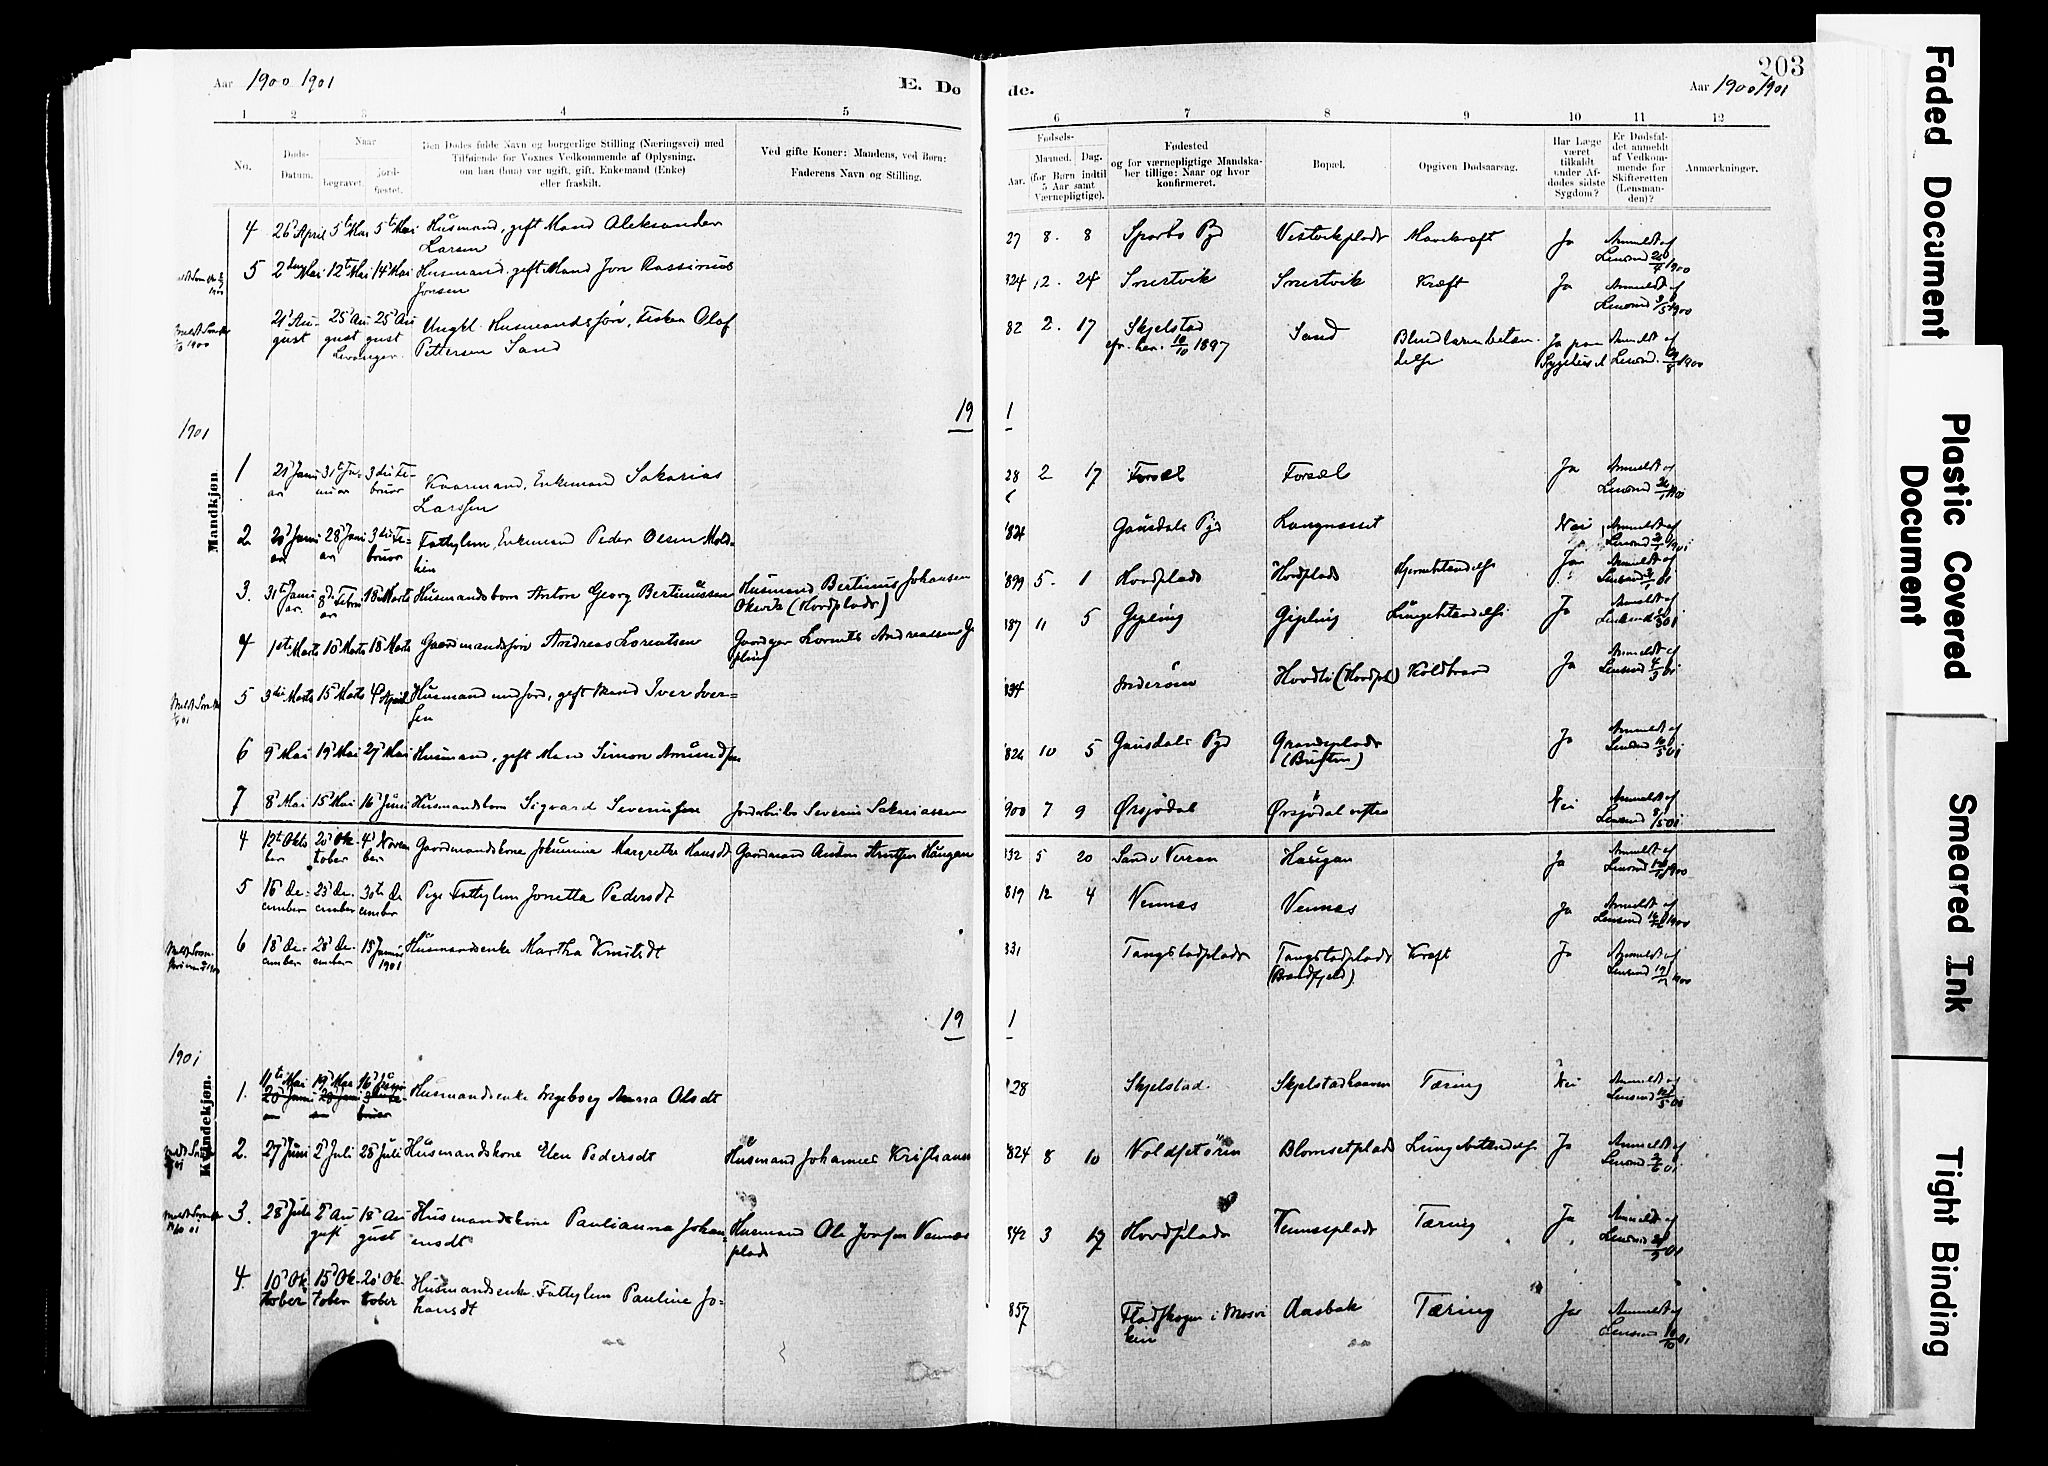 Aar 1900 1901
E. Dø
de.
203
Aar 1900 1901
1 2 3 4 5 6 7 8 9 10 11 12
No.
Døds-
Datum.
Naar
begravet.
jord-
fæstet.
Den Dødes fulde Navn og borgerlige Stilling (Næringsvei) med
Tilføiende for Voxnes Vedkommende af Oplysning,
om han (hun) var ugift, gift, Enkemand (Enke)
eller fraskilt.
Ved gifte Koner: Mandens, ved Børn:
Faderens Navn og Stilling.
Fødsels-
Aar.
Maaned.
Dag.
(for Børn indtil
5 Aar samt
Værnepligtige).
Fødested
og for værnepligtige Mandska-
ber tillige: Naar og hvor
konfirmeret.
Bopæl.
Opgiven Dødsaarsag.
Har Læge
været
tilkaldt
under Af-
dødes sidste
Sygdom?
Er Dødsfal-
det anmeldt
af Vedkom-
mende for
Skifteretten
(Lensman-
den)?
Anmærkninger.
4 26 April 5te Mai 5te Mai Husmand, gift Mand Aleksander
Larsen
27 8. 8 Sparbo Pgd Vestvikplads Mavekræft Ja Anmeldt af
Lensmd 28/4 1900
5 2den Mai 12te Mai 14 Mai Husmand, gift Mand Jon Rassinus
Jonsen
824 12. 24 Smertvik Smertvik Kræft Ja Anmeldt af
Lensmd 3/5 1900
21 Au-
gust
25 Au
gust
Levanger.
25 Au
gust
Ungkl. Husmandssøn, Fisker Olaf
Pettersen Sand
82 2. 17 Skjelstad
cfr. her. 10/10 1897
Sand Blindtarmbetæn-
delse
Ja paa
Sygehuset
Anmeldt af
Lensmd. 1900
19
1
1901
Mandkjøn.
1 21 Janu
ar
31te Ja-
nuar
3die Fe-
bruar
Kaarmand, Enkemand Sakarias
Larssen
28 2 17 Forsæl Forsæl Ja Anmeldt af
Lensmd
2 20 Janu
ar
28 Janu
ar
3die Fe-
bruar
Fattiglem, Enkemand Peder Olsen Mold-
hein
824 Gausdals Pgd Langnesset Nei Anmeldt af
Lensmd
3. 31te Janu
ar.
8d Febru
ar
18 Marts Husmandsbarn Anton Georg Bertinussen Husmand Bertinus Johansen
Okvik (Hovdplads)
899 5. 1 Hovdplads Hovdplads Hjernebetændelse Ja Anmeldt af
4 1ste Marts 10 Marts 18 Marts Gaardmandssøn Andreas Lorentsen Gaardejer Lorents Andreassen Gi
pling
87 11 5 Gipling Gipling Lungebetændelse Ja Anmeldt af
5 3die Marts 15 Marts 4 April Husmand med Jord, gift Mand Iver Iver-
sen
834 Inderøen Hovdli (Hovdpl) Koldbrand Ja Anmeldt af
Lensmd 4/3 01
6 9 Mai 19 Mai 27 Mai Husmand, gift Mand Simon Amundsen
826 10 5 Gausdals Pgd Grandeplads Ja Anmeldt af
Lensmd 10/5 01
7 8 Mai 15 Mai 16 Juni Husmandsbarn Sigvard Severinsen Jordarbeider Severin Sakariassen
900 7 9 Ørsjødal Ørsjødal Nei Anmeldt af
Lensmd 8/5 01
4 12te Okto
ber
20 Ok-
tober
4 Novem
ber
Gaardmandskone Johannna Margrethe Hansdt Gaardmand Anton Arntsen Haugan
832 5 20 Sand i Verran Haugan Ja Anmeldt af
Lensmd 1900
5 16 De-
cember
23 De-
cember
30te De
cember
Pige Fattiglem Jonetta Pedersdt
819 12 4 Vennes Vennes Ja Anmeldt af
Lensmd 1900
6 18 De-
cember
28 De-
cember
13 Januar
1901
Husmandsenke Martha Knutsdt
831 Tangstadplads Tangstadplads
(Brandfjeld)
Kræft Ja Anmeldt af
Lensmd 1900
19
1
1901
Kvindekjøn.
1. 11te Mai 19 Mai 16 Juni
Husmandsenke Ingeborg Anna Olsdt
28 Skjelstad. Skjelstadhaven Tæring Nei Anmeldt af
Lensmd
2. 27 Juni 2 Juli 28 Juli Husmandskone Elen Pedersdt Husmand Johannes Kristiansen
824 8 10 Voldsetøren Blomsetplads Lungebetændelse Ja Anmeldt af
Lensmd
3. 28 Juli 2 Au
gust
18 Au
gust
Husmandskone Paulianna Johan-
nesdt
Husmand Ole Jonsen Vennes
plads
842 3 17 Hovdplads Vennesplads Tæring Ja Anmeldt af
Lensmd
4 10 Ok
tober
15 Ok-
tober
20 Ok-
tober
Husmandsenke Fattiglem Pauline Jo-
hansdt
857 i Mosvi
ken
Aasbak Tæring Ja Anmeldt af
Lensmd 10/10 01
Faded Document
Plastic Covered
Document
Smeared Ink
Tight Binding